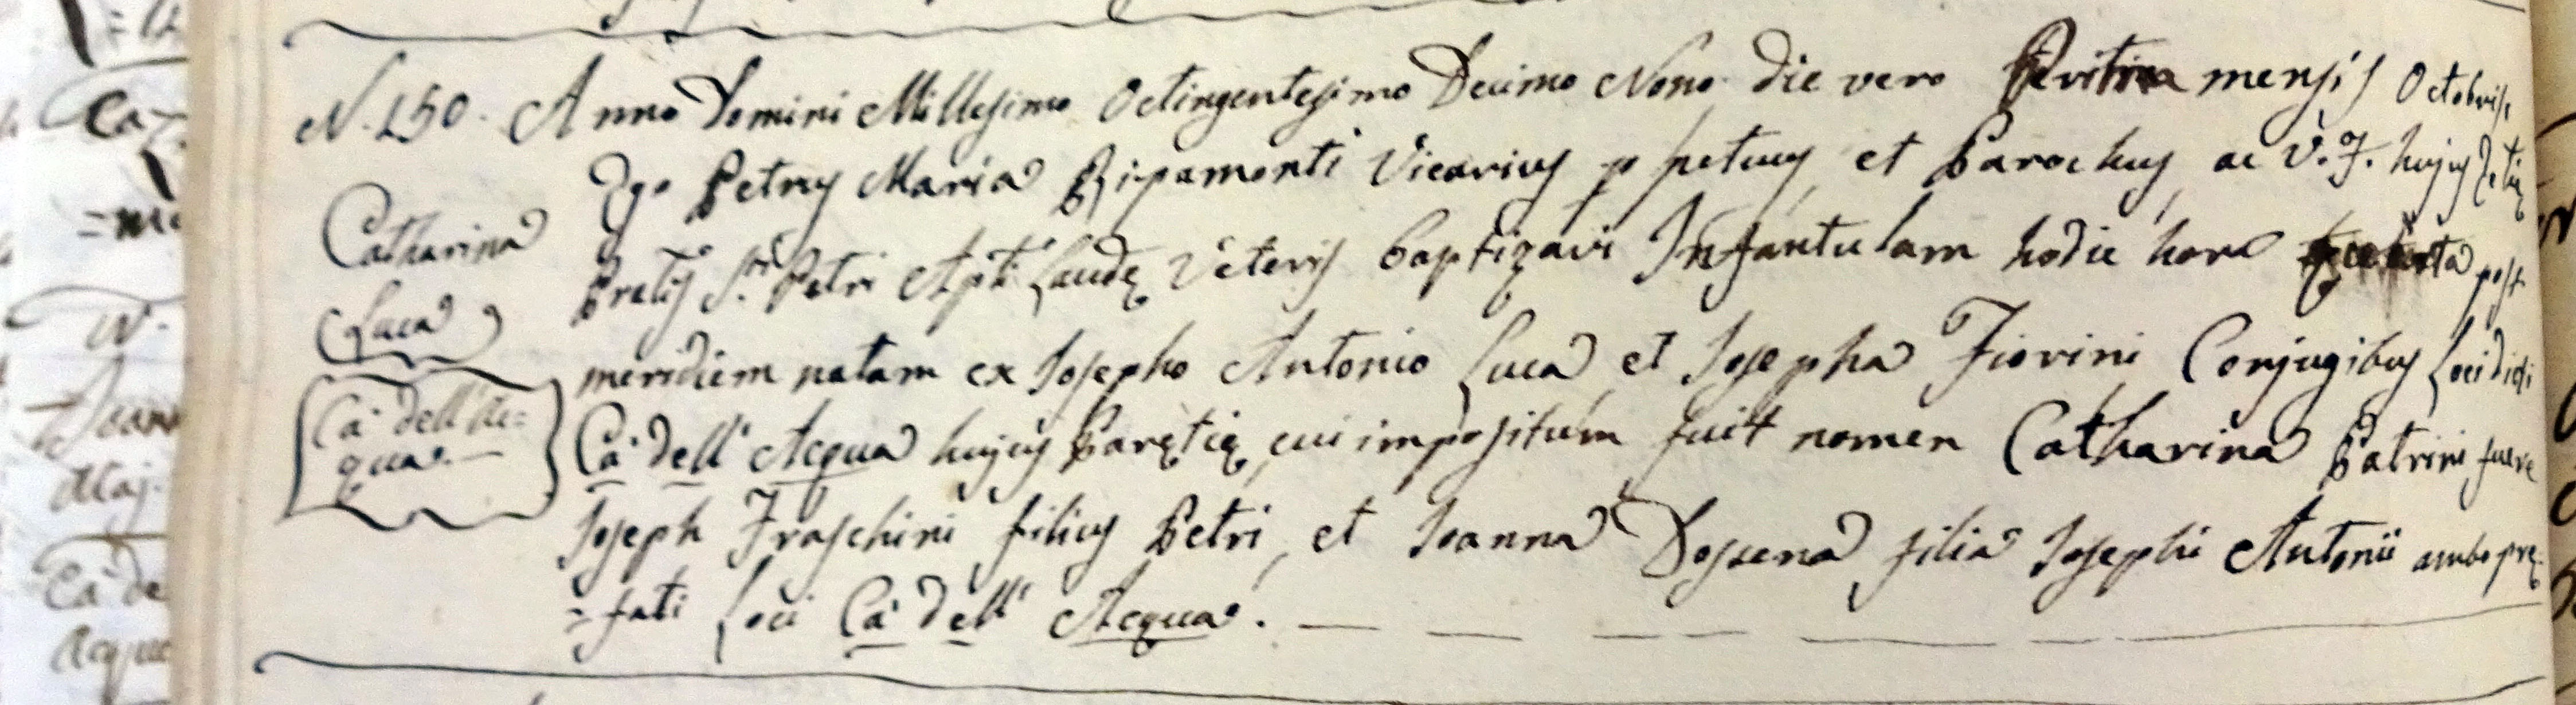 N. 150. Anno Domini Millesimo Octingentesimo Decimo Nono die vero mensis Octobris
Ego Petrus Maria Ripamonti Vicarius ppetuus, et Parochus, ac V. F. hujus
Catharina
S.ti Petri Apti Laudę Veteris baptizavi Infantulam hodie hora post
Luca
meridiem natam ex Josepho Antonio Luca et Josepha Fiorini Conjugibus Loci dicti
Ca' dell' Ac=
qua.
Ca' dell' Acqua hujus Parętię, cui impositum fuit nomen Catharina Patrini fuere
Joseph Fraschini filius Petri, et Joanna Dossena filia Josephi Antonii ambo prę=
=fati Loci Ca' dell' Acqua.